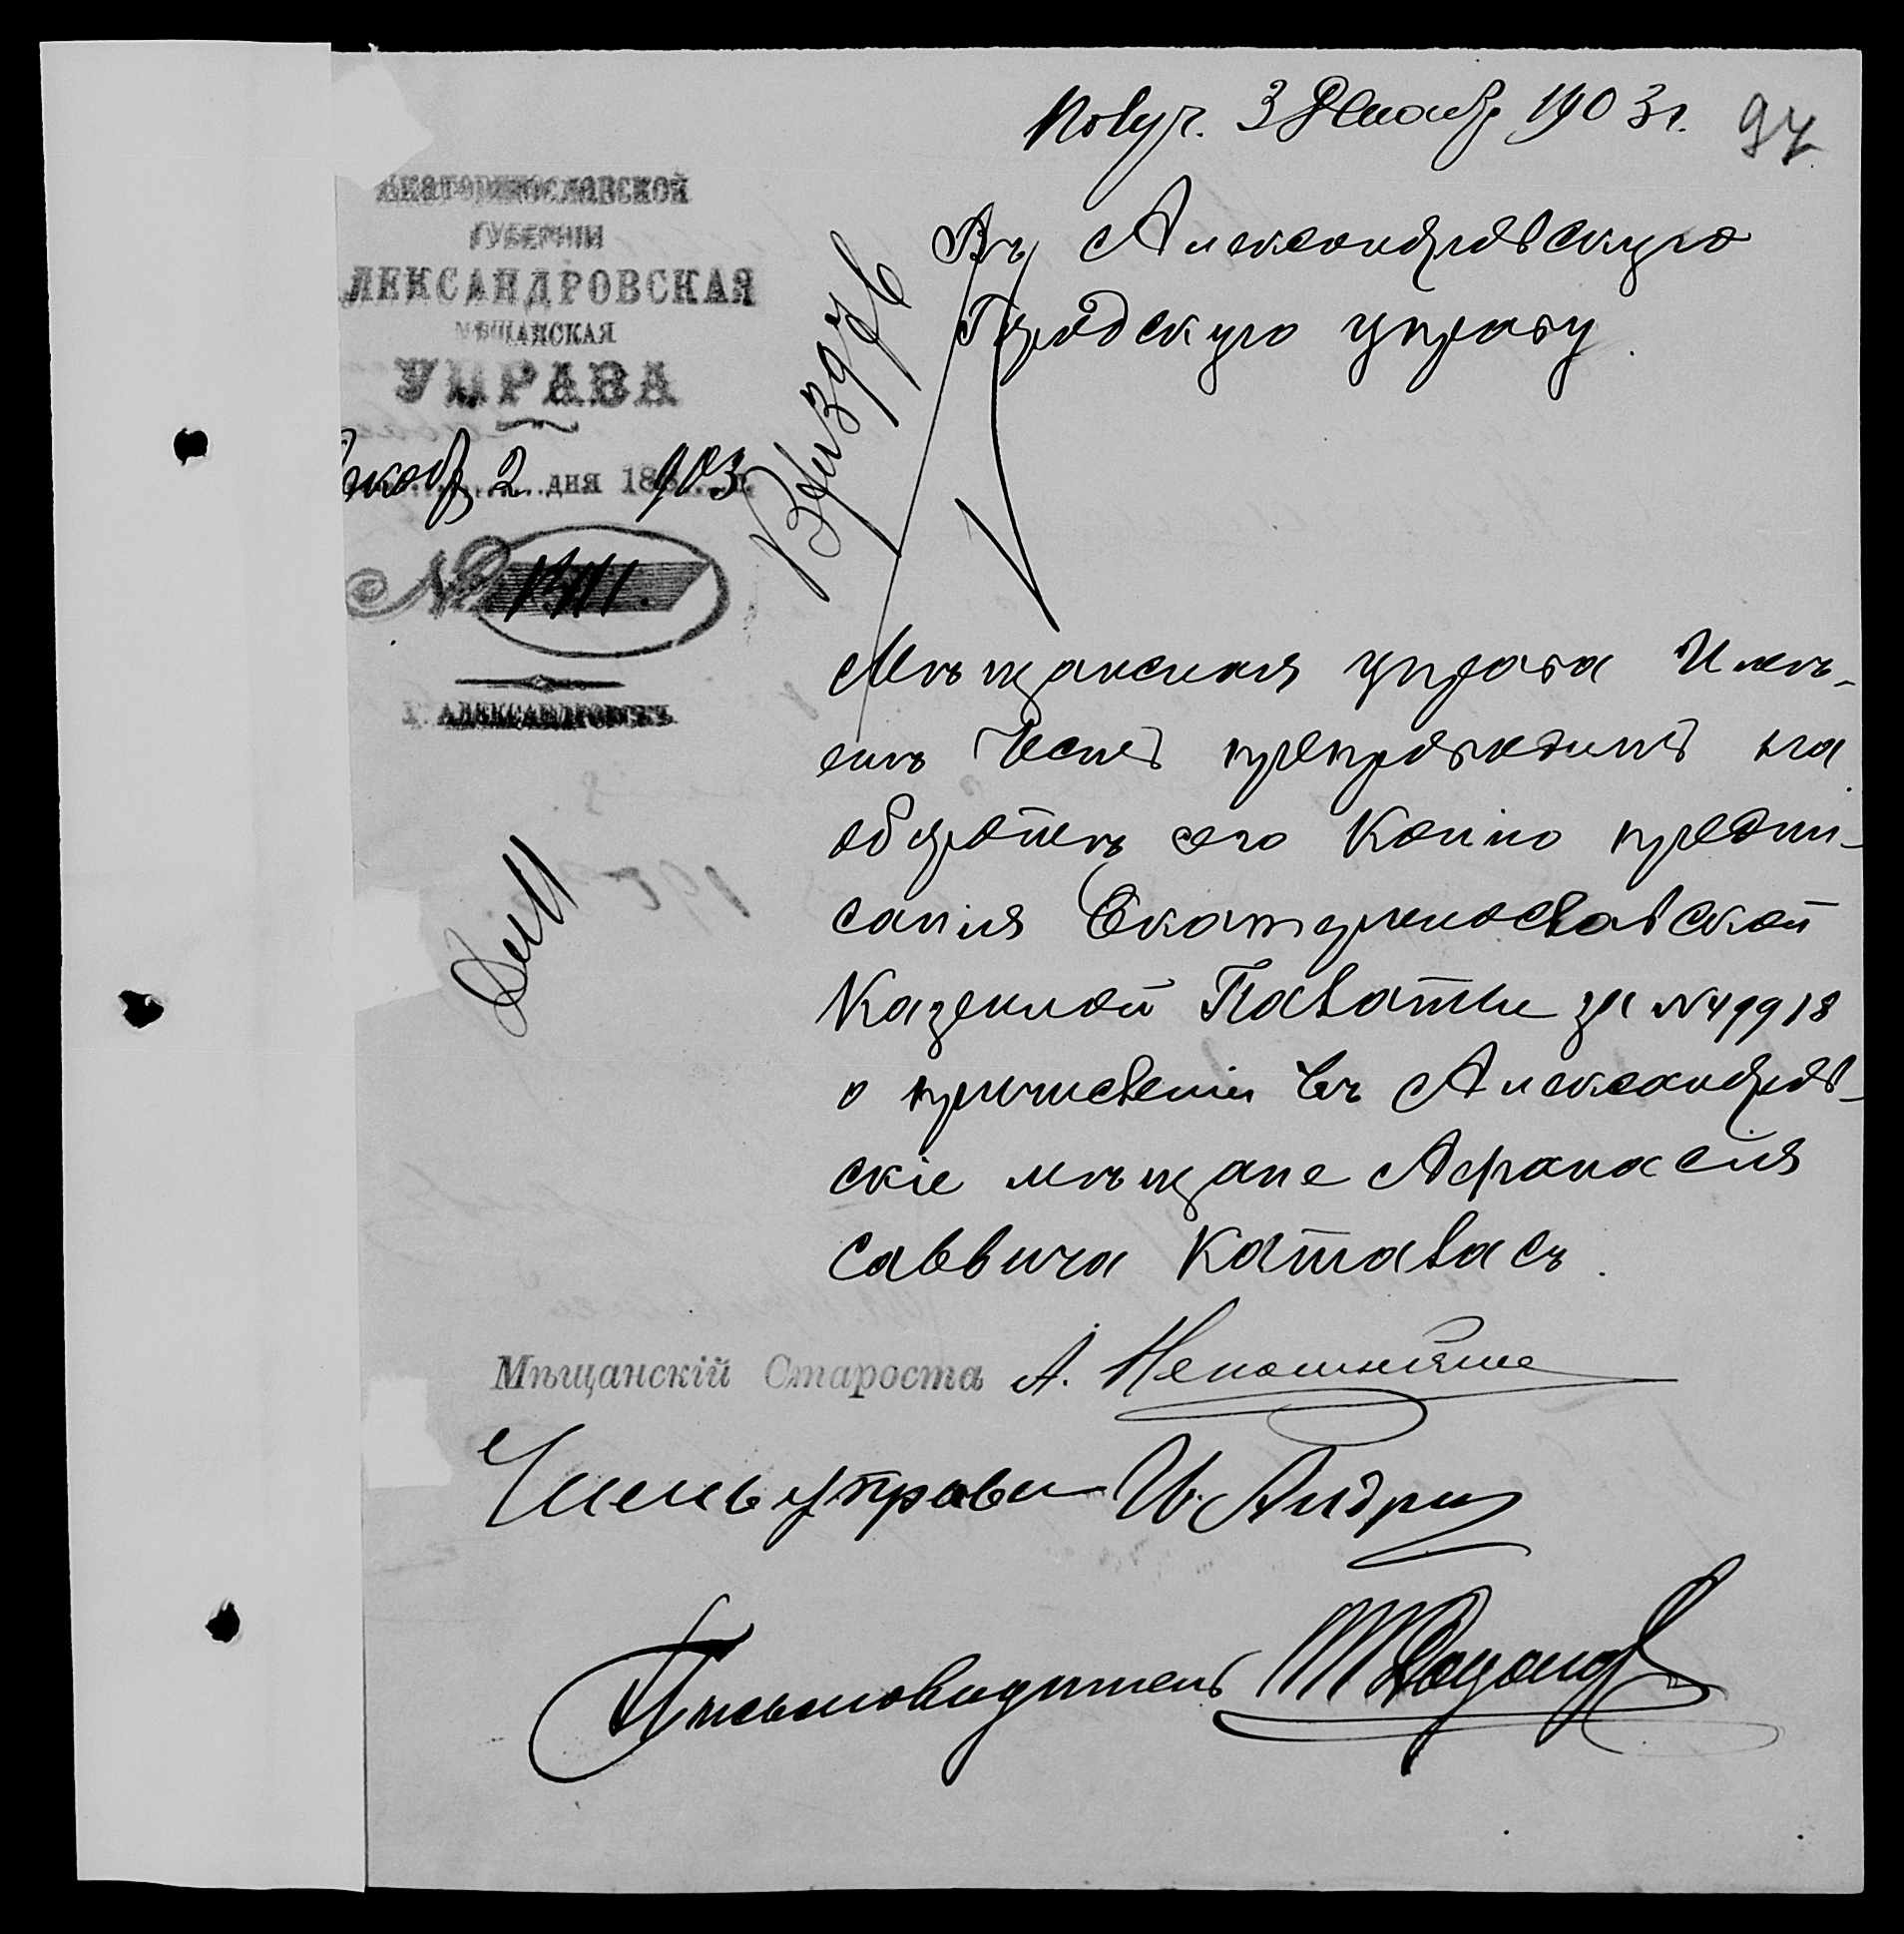 Получ. 3 Декабр 1903 г. 97
Екатеринославской
ГУБЕРНІИ
АЛЕКСАНДРОВСКАЯ
МѢЩАНСКАЯ
УПРАВА
Декабр 2 дня 1903 г.
№
Г. АЛЕКСАНДРОВСКЪ
Въ Александровскую
Городскую управу.
Мѣщанская управа имѣ-
етъ честь препроводить на
оборотѣ сего копію предпи-
санія Екатеринославской
Казенной Палаты за №49918
о причисленіи въ Александров-
скіе мѣщане Афанасія
Саввича Каталасъ.
Мѣщанскій Староста А.
Членъ управы И.
Письмоводитель